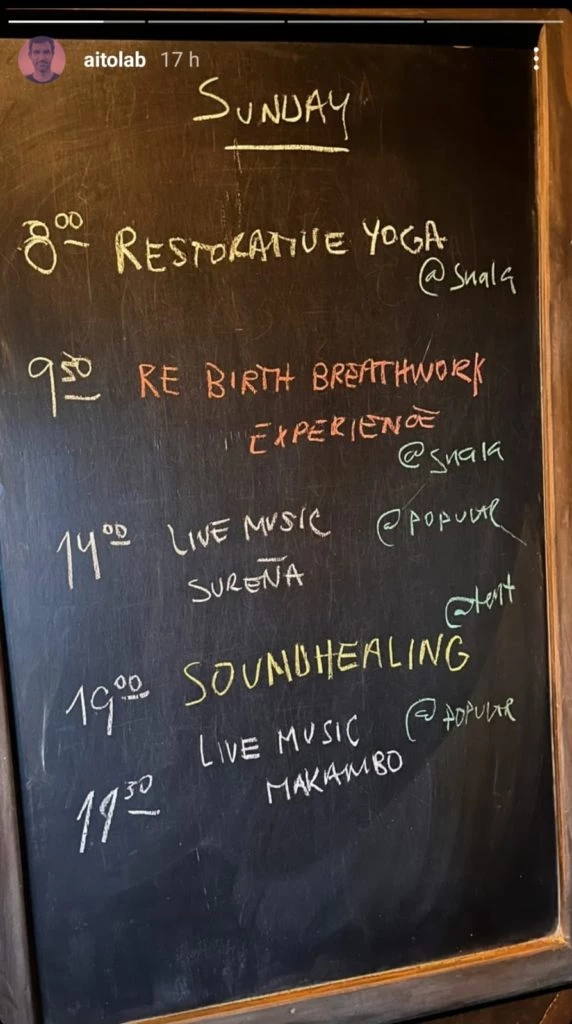 aitolab 17 h
SUNDAY
800 RESTORATIVE YOGA
@Snala
9
RE BIRTH BREATHWORK
EXPERIENCE
@Snala
1400 LIVE MUSIC @POPULAR
SUREÑA
@tent
1900 SOUNDHEALING
LIVE MUSIC @POPULAR
MAKAMBO
1930